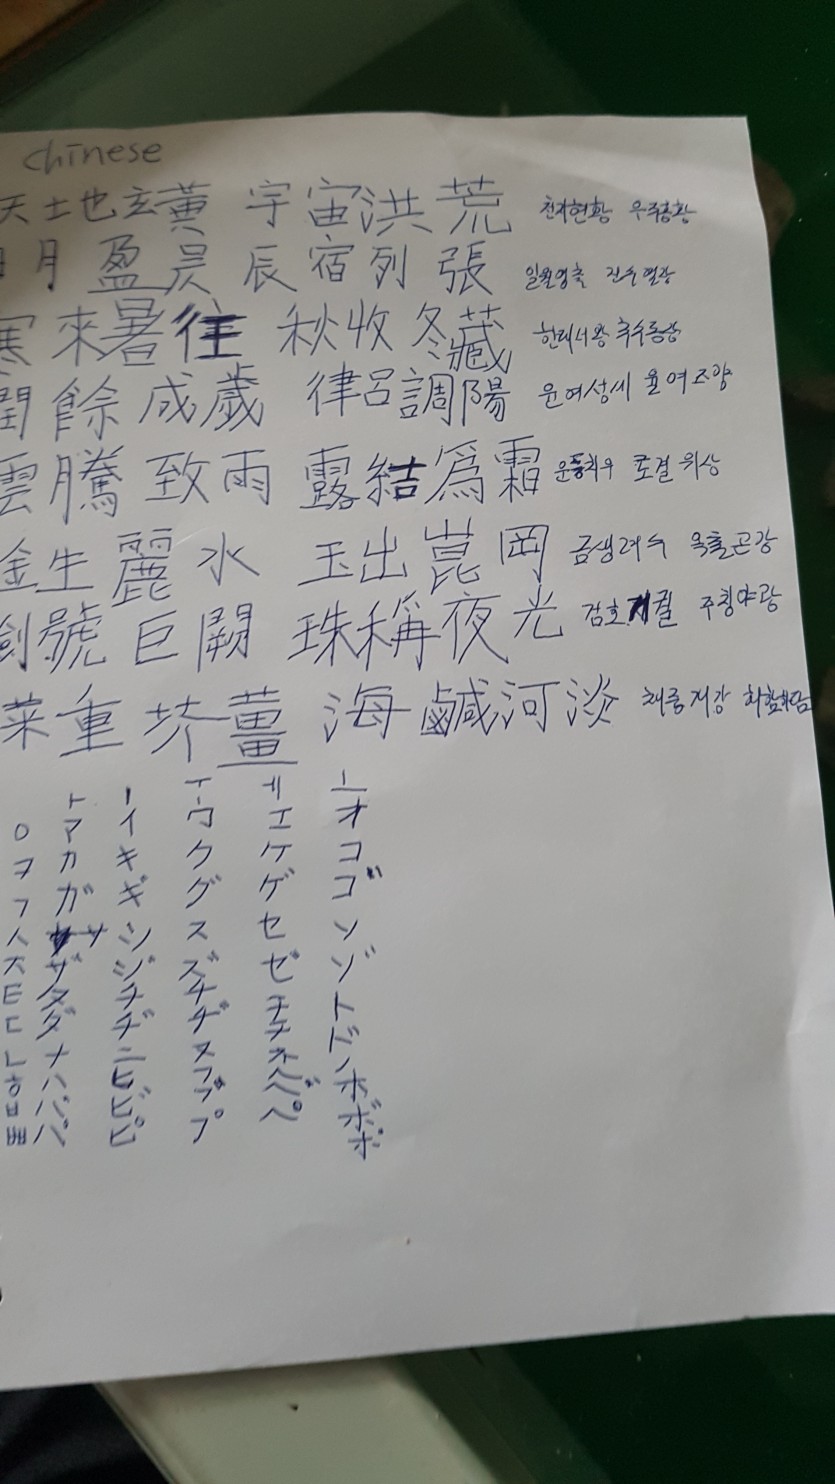 Chinese
天土也玄黃 宇宙洪荒 천지현황 우주홍황
日月盈昃 辰宿列張 일월영측 진수열장
寒來暑往 秋收冬藏 한래서왕 추수동장
閏餘成歲 律呂調陽 윤여성세 율여조양
雲騰致雨 露結爲霜 운등치우 로결위상
金生麗水 玉出崑岡 금생려수 옥출곤강
劍號巨闕 珠稱夜光 검호거궐 주칭야광
菜重芥薑 海鹹河淡 채중개강 해함하담
ㅏ ㅣ ㅜ ㅔ ㅗ
ㅇ ア イ ウ エ オ
ヲ カ キ ク ケ コ
ㄱ ガ ギ グ ゲ ゴ
ㅅ サ シ ス セ ソ
ㅈ ザ ジ ズ ゼ ゾ
ㅌ タ チ チ テ ト
ㄷ ダ ヂ ヂ デ ド
ㄴ ナ ニ ヌ ネ ノ
ㅎ ハ ヒ
ㅂ バ ビ ブ ベ ボ
ㅃ パ ピ プ ペ ポ